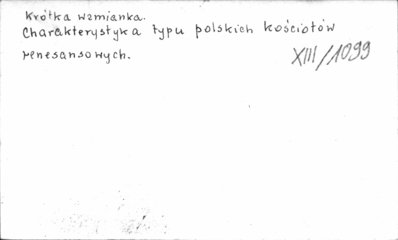 Krótka wzmianka.
Charakterystyka typu polskich kościołów
renesansowych.
XIII/1099